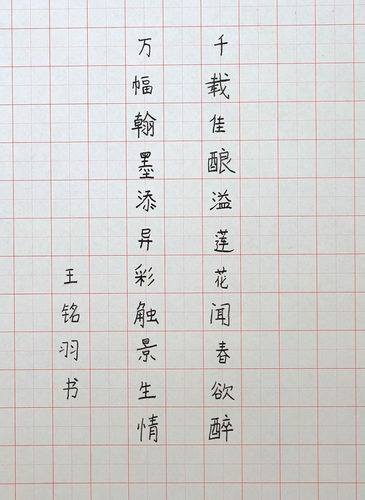 千载佳酿溢莲花闻春欲醉
万幅翰墨添异彩触景生情
王铭羽书